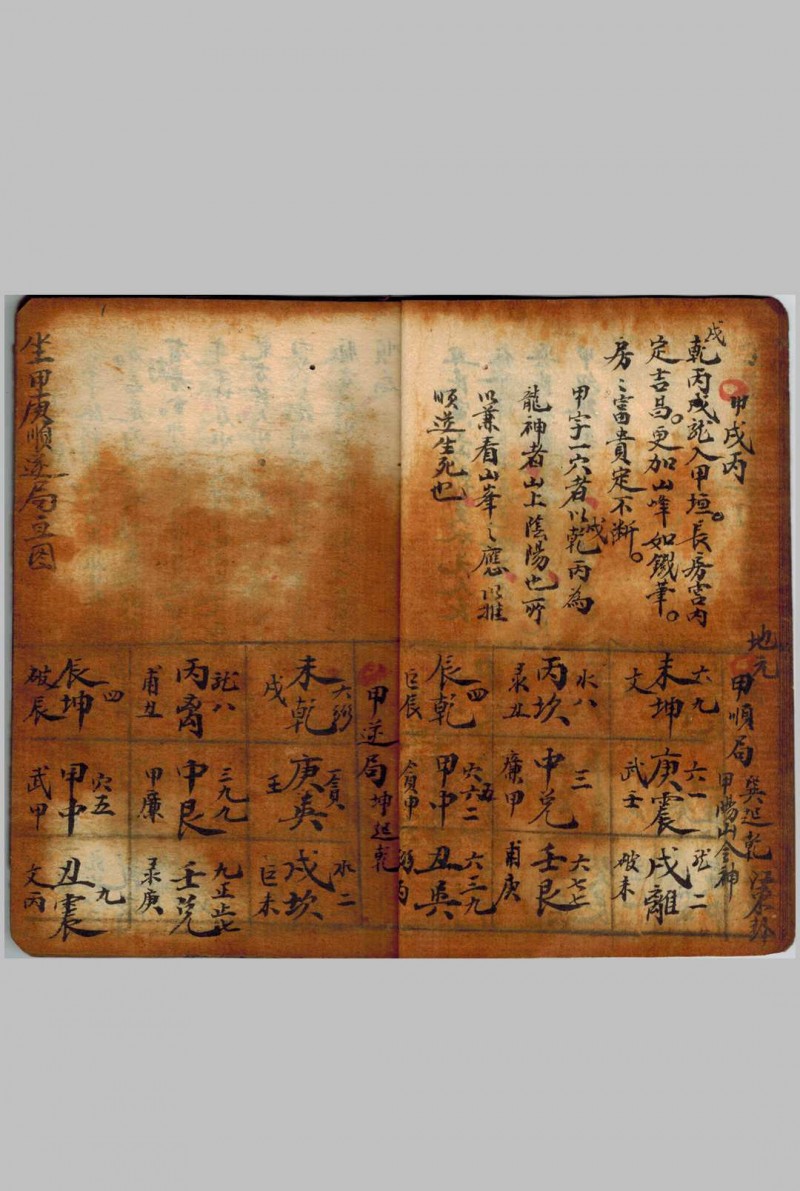 甲戌丙
戌
乾丙戌龍入甲垣。長房宮內
定吉昌。更加山峰如鐵筆。
房〻富貴定不断。
甲字一穴者以乾戌丙為
龍神者山上陰陽也所
以兼看山峯之應以推
順逆生死也
地元
甲順局 巽延乾
甲陽山金神
未坤 六九 文
庚震 六一 武壬
戌離 龙二 破未
丙坎 水八 录丑
中兌 三 廉甲
壬艮 六七七 甫庚
辰乾 四 巨辰
甲中 穴六二五 貪申
丑巽 六三九 丙
甲逆局 坤延乾
未乾 六 戊
庚巽 一貪 壬
戌坎 水二 巨未
丙离 龙八 甫丑
中艮 三九九 甲廉
壬兌 九正 录庚
辰坤 一四 破辰
甲中 穴五 武甲
丑震 九 文丙
坐甲庚順逆局立図